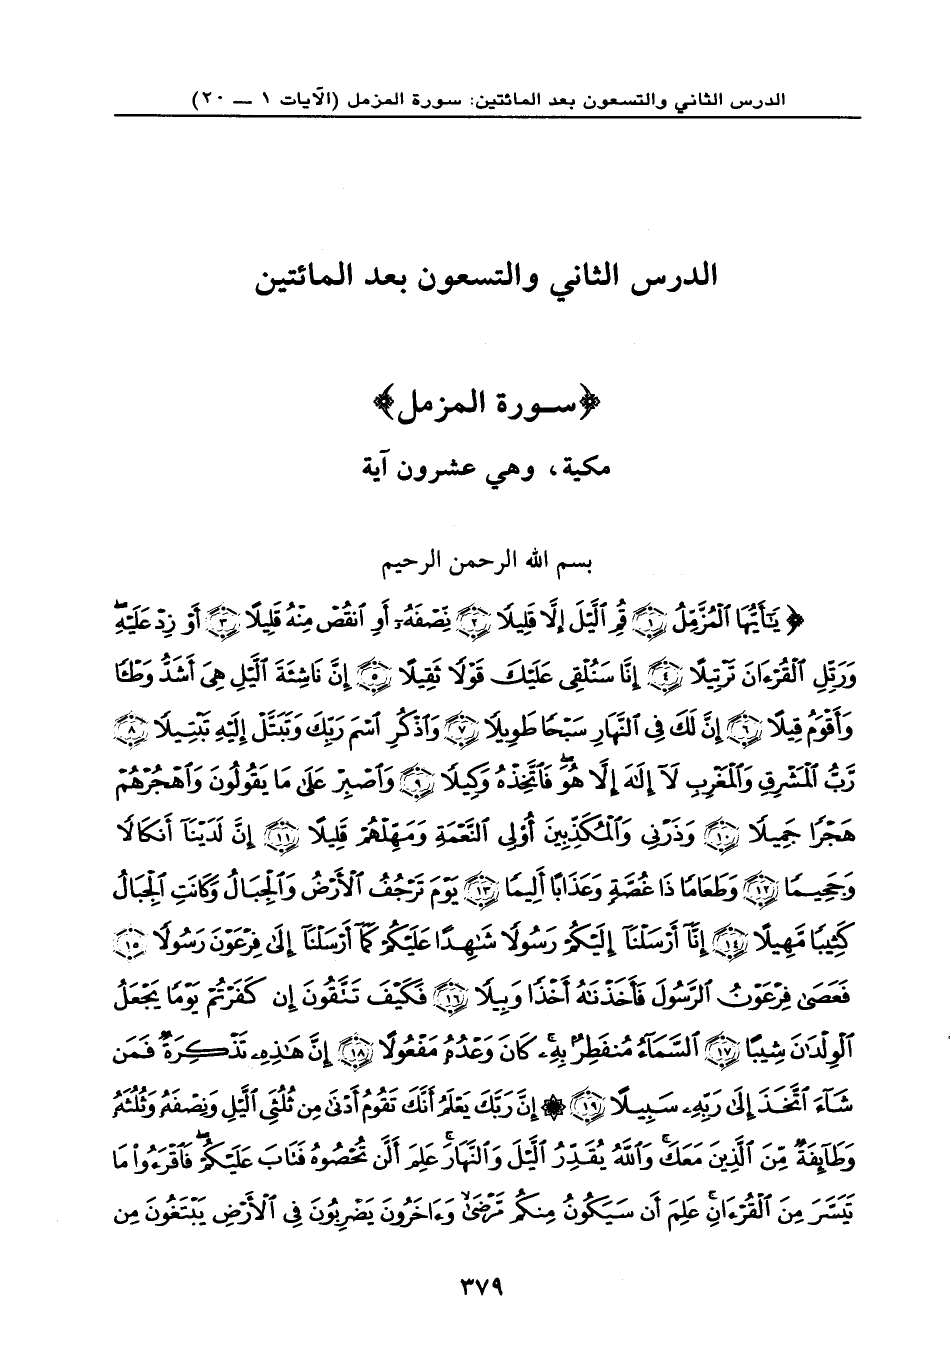 الدرس الثاني والتسعون بعد المائتين: سورة المزمل (الآيات ١ — ٢٠)
الدرس الثاني والتسعون بعد المائتين
﴿سورة المزمل﴾
مكية، وهي عشرون آية
بسم الله الرحمن الرحيم
﴿ يَٰٓأَيُّهَا ٱلْمُزَّمِّلُ ۝١ قُمِ ٱلَّيْلَ إِلَّا قَلِيلًا ۝٢ نِّصْفَهُۥٓ أَوِ ٱنقُصْ مِنْهُ قَلِيلًا ۝٣ أَوْ زِدْ عَلَيْهِ
وَرَتِّلِ ٱلْقُرْءَانَ تَرْتِيلًا ۝٤ إِنَّا سَنُلْقِى عَلَيْكَ قَوْلًا ثَقِيلًا ۝٥ إِنَّ نَاشِئَةَ ٱلَّيْلِ هِىَ أَشَدُّ وَطْـًٔا
وَأَقْوَمُ قِيلًا ۝٦ إِنَّ لَكَ فِى ٱلنَّهَارِ سَبْحًا طَوِيلًا ۝٧ وَٱذْكُرِ ٱسْمَ رَبِّكَ وَتَبَتَّلْ إِلَيْهِ تَبْتِيلًا ۝٨
رَّبُّ ٱلْمَشْرِقِ وَٱلْمَغْرِبِ لَآ إِلَٰهَ إِلَّا هُوَ فَٱتَّخِذْهُ وَكِيلًا ۝٩ وَٱصْبِرْ عَلَىٰ مَا يَقُولُونَ وَٱهْجُرْهُمْ
هَجْرًا جَمِيلًا ۝١٠ وَذَرْنِى وَٱلْمُكَذِّبِينَ أُو۟لِى ٱلنَّعْمَةِ وَمَهِّلْهُمْ قَلِيلًا ۝١١ إِنَّ لَدَيْنَآ أَنكَالًا
وَجَحِيمًا ۝١٢ وَطَعَامًا ذَا غُصَّةٍ وَعَذَابًا أَلِيمًا ۝١٣ يَوْمَ تَرْجُفُ ٱلْأَرْضُ وَٱلْجِبَالُ وَكَانَتِ ٱلْجِبَالُ
كَثِيبًا مَّهِيلًا ۝١٤ إِنَّآ أَرْسَلْنَآ إِلَيْكُمْ رَسُولًا شَٰهِدًا عَلَيْكُمْ كَمَآ أَرْسَلْنَآ إِلَىٰ فِرْعَوْنَ رَسُولًا ۝١٥
فَعَصَىٰ فِرْعَوْنُ ٱلرَّسُولَ فَأَخَذْنَٰهُ أَخْذًا وَبِيلًا ۝١٦ فَكَيْفَ تَتَّقُونَ إِن كَفَرْتُمْ يَوْمًا يَجْعَلُ
ٱلْوِلْدَٰنَ شِيبًا ۝١٧ ٱلسَّمَآءُ مُنفَطِرٌۢ بِهِۦ ۚ كَانَ وَعْدُهُۥ مَفْعُولًا ۝١٨ إِنَّ هَٰذِهِۦ تَذْكِرَةٌ ۖ فَمَن
شَآءَ ٱتَّخَذَ إِلَىٰ رَبِّهِۦ سَبِيلًا ۝١٩ ۞ إِنَّ رَبَّكَ يَعْلَمُ أَنَّكَ تَقُومُ أَدْنَىٰ مِن ثُلُثَىِ ٱلَّيْلِ وَنِصْفَهُۥ وَثُلُثَهُۥ
وَطَآئِفَةٌ مِّنَ ٱلَّذِينَ مَعَكَ ۚ وَٱللَّهُ يُقَدِّرُ ٱلَّيْلَ وَٱلنَّهَارَ ۚ عَلِمَ أَن لَّن تُحْصُوهُ فَتَابَ عَلَيْكُمْ ۖ فَٱقْرَءُوا۟ مَا
تَيَسَّرَ مِنَ ٱلْقُرْءَانِ ۚ عَلِمَ أَن سَيَكُونُ مِنكُم مَّرْضَىٰ ۙ وَءَاخَرُونَ يَضْرِبُونَ فِى ٱلْأَرْضِ يَبْتَغُونَ مِن
٣٧٩